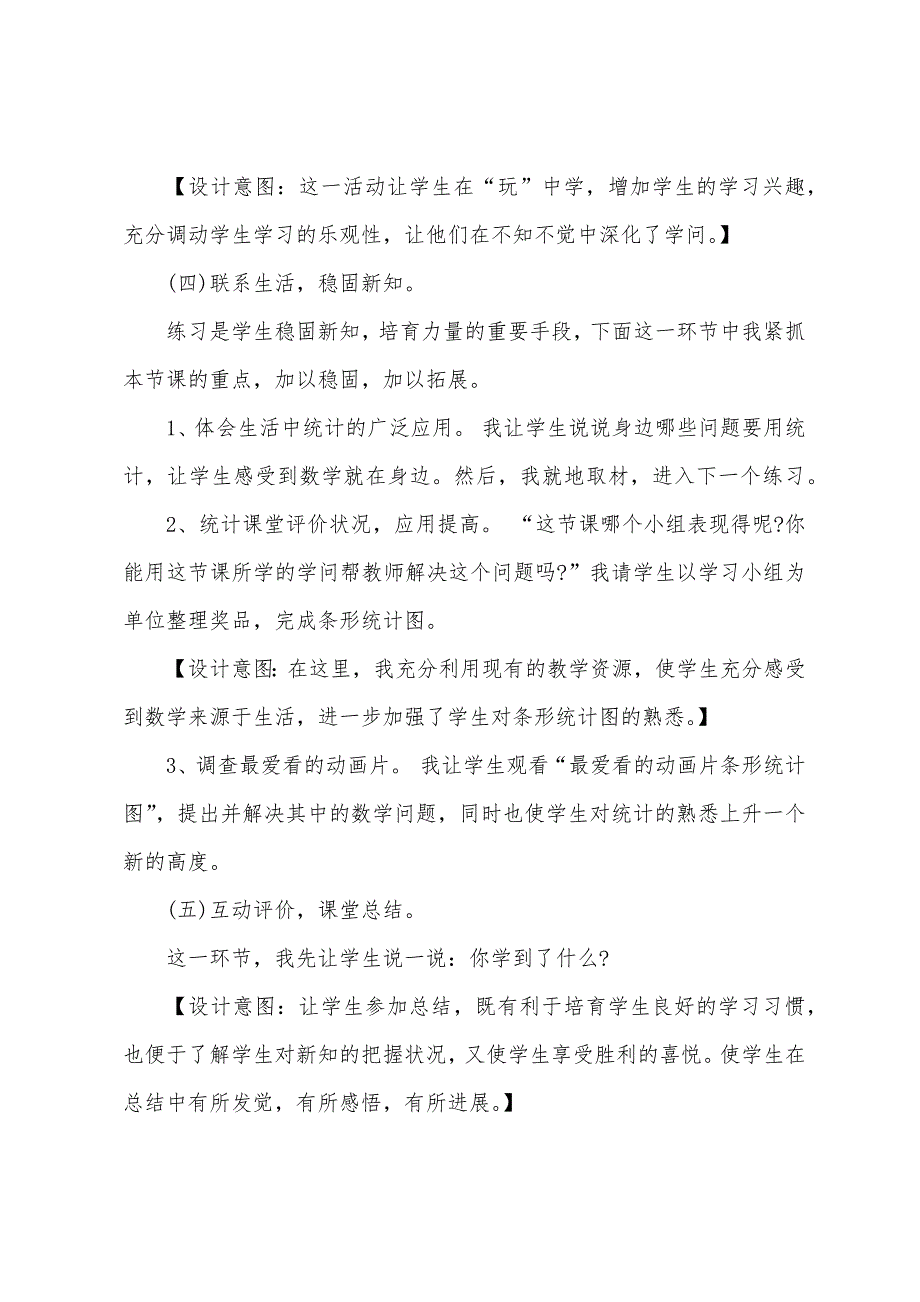 【设计意图：这一活动让学生在“玩”中学，增加学生的学习兴趣，
充分调动学生学习的乐观性，让他们在不知不觉中深化了学问。】
(四)联系生活，稳固新知。
练习是学生稳固新知，培育力量的重要手段，下面这一环节中我紧抓
本节课的重点，加以稳固，加以拓展。
1、体会生活中统计的广泛应用。 我让学生说说身边哪些问题要用统
计，让学生感受到数学就在身边。然后，我就地取材，进入下一个练习。
2、统计课堂评价状况，应用提高。 “这节课哪个小组表现得呢?你
能用这节课所学的学问帮教师解决这个问题吗?”我请学生以学习小组为
单位整理奖品，完成条形统计图。
【设计意图：在这里，我充分利用现有的教学资源，使学生充分感受
到数学来源于生活，进一步加强了学生对条形统计图的熟悉。】
3、调查最爱看的动画片。 我让学生观看“最爱看的动画片条形统计
图”，提出并解决其中的数学问题，同时也使学生对统计的熟悉上升一个
新的高度。
(五)互动评价，课堂总结。
这一环节，我先让学生说一说：你学到了什么?
【设计意图：让学生参加总结，既有利于培育学生良好的学习习惯，
也便于了解学生对新知的把握状况，又使学生享受胜利的喜悦。使学生在
总结中有所发觉，有所感悟，有所进展。】